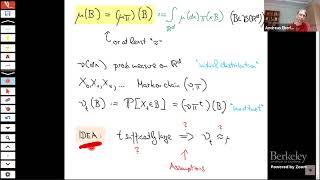 μ(B) = (μπ)(B) := ∫ μ(dx) π(x,B) (B∈B(ℝᵈ))
ℝᵈ
(or at least "≈"
ν(dx) prob measure on ℝᵈ "initial distribution"
X₀, X₁, X₂, ... Markov chain (ν,π)
νₜ(B) := P[Xₜ∈B] = (νπᵗ)(B)
IDEA: t sufficiently large ⟹ νₜ ≈ μ
? ? ?
Assumptions
Andreas Eberl...
Berkeley
Powered by Zoom